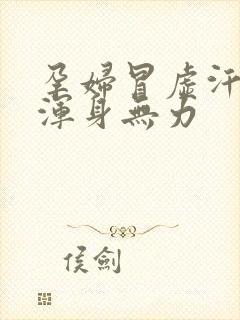 孕婦冒虛汗
渾身無力
侯劍